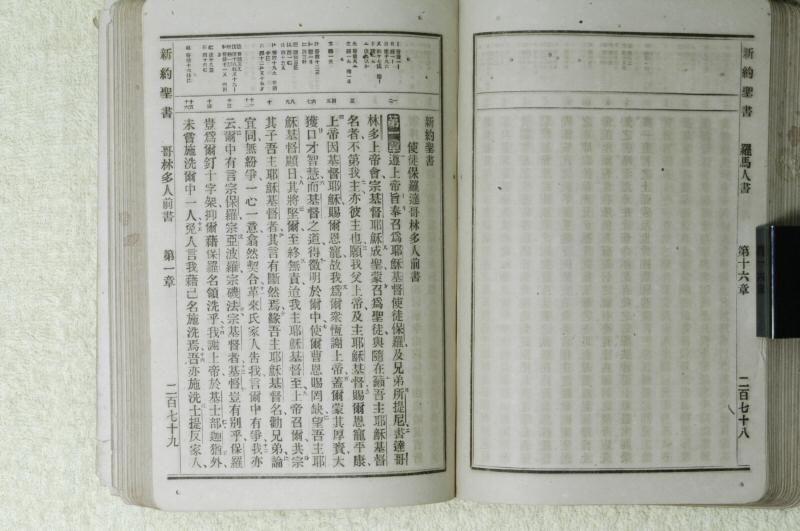 新約聖書
羅馬人書
第十六章
二百七十八
新約聖書
使徒保羅達哥林多人前書
第一章遵上帝旨奉召爲耶穌基督使徒保羅及兄弟所提尼書達哥
林多上帝會宗基督耶穌成聖蒙召爲聖徒與隨在籲吾主耶穌基督
名者不第我主亦彼主也願我父上帝及主耶穌基督賜爾恩寵平康
上帝因基督耶穌賜爾恩寵故我爲爾衆恆謝上帝蓋爾蒙其厚賚大
獲口才智慧而基督之道得徵明於爾中使爾曹恩賜罔缺望吾主耶
穌基督顯日其將堅爾至終無責迨我主耶穌基督至上帝召爾共宗
其子吾主耶穌基督者其言有斷然焉緣吾主耶穌基督名勸兄弟論
宜同無紛爭一心一意翕然契合革來氏家人告我言爾中有爭我亦
云爾中有言宗保羅宗亞波羅宗磯法宗基督者基督豈有別乎保羅
豈爲爾釘十字架抑爾藉保羅名領洗乎我謝上帝於基士部迦猶外
未嘗施洗爾中一人免人言我藉己名施洗焉吾亦施洗士提反家人
新約聖書
哥林多人前書
第一章
二百七十九